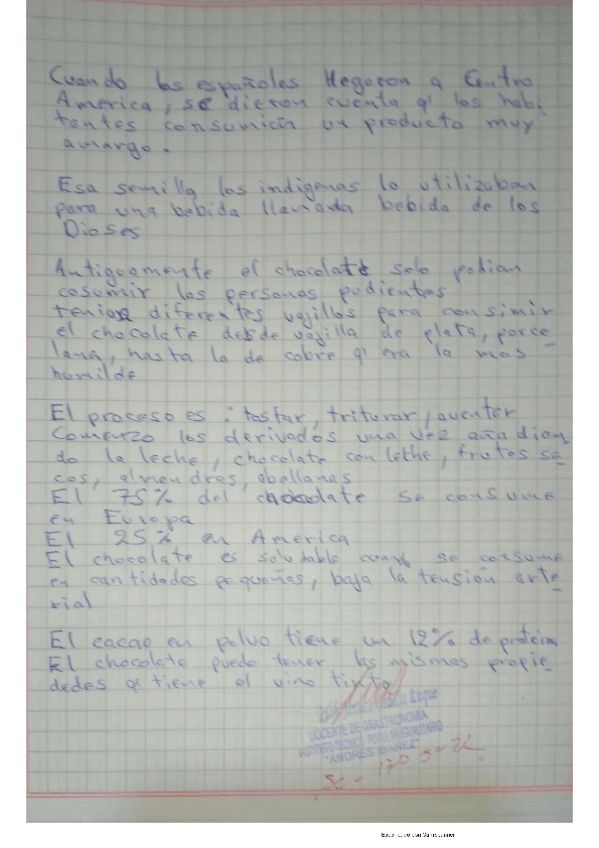 Cuando los españoles llegaron a Centro
America, se dieron cuenta q' los habi
tantes consumian un producto muy
amargo.
Esa semilla los indigenas lo utilizaban
para una bebida llamada bebida de los
Dioses
Antiguamente el chocolate solo podian
cosumir las personas pudientes
tenian diferentes vajillas para consimir
el chocolate desde vajilla de plata, porce
lana, hasta la de cobre q' era la mas
humilde
El proceso es: tostar, triturar, aventar
Comenzo los derivados una vez añadien
do la leche, chocolate con leche, frutos se
cos, almendras, abellanas
El 75% del chocolate se consume
en Europa
El 25% en America
El chocolate es saludable cuando se consume
en cantidades pequeñas, baja la tensión arte
rial
El cacao en polvo tiene un 12% de proteina
El chocolate puede tener las mismas propie
dades q' tiene el vino tinto
DOCENTE DE GASTRONOMIA
"ANDRES IBAÑEZ"